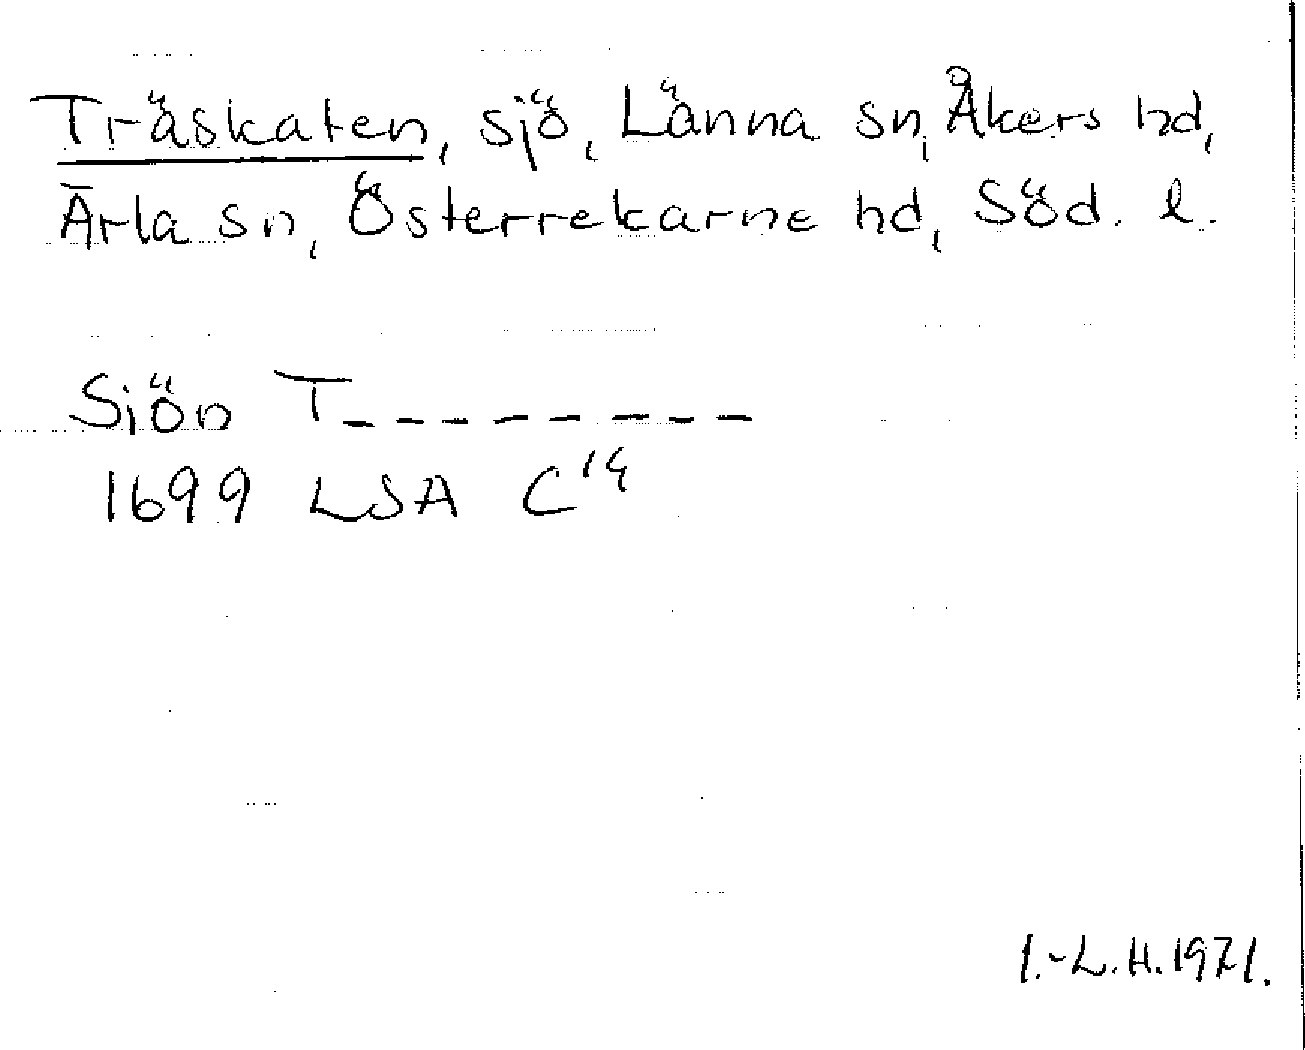 Träskaten, sjö, Länna sn, Åkers hd,
Ärla sn, Österrekarne hd, Söd. l.
Siön T_ _ _ _ _ _ _ _
1699 LSA C¹⁴
I.-L.H. 1971.